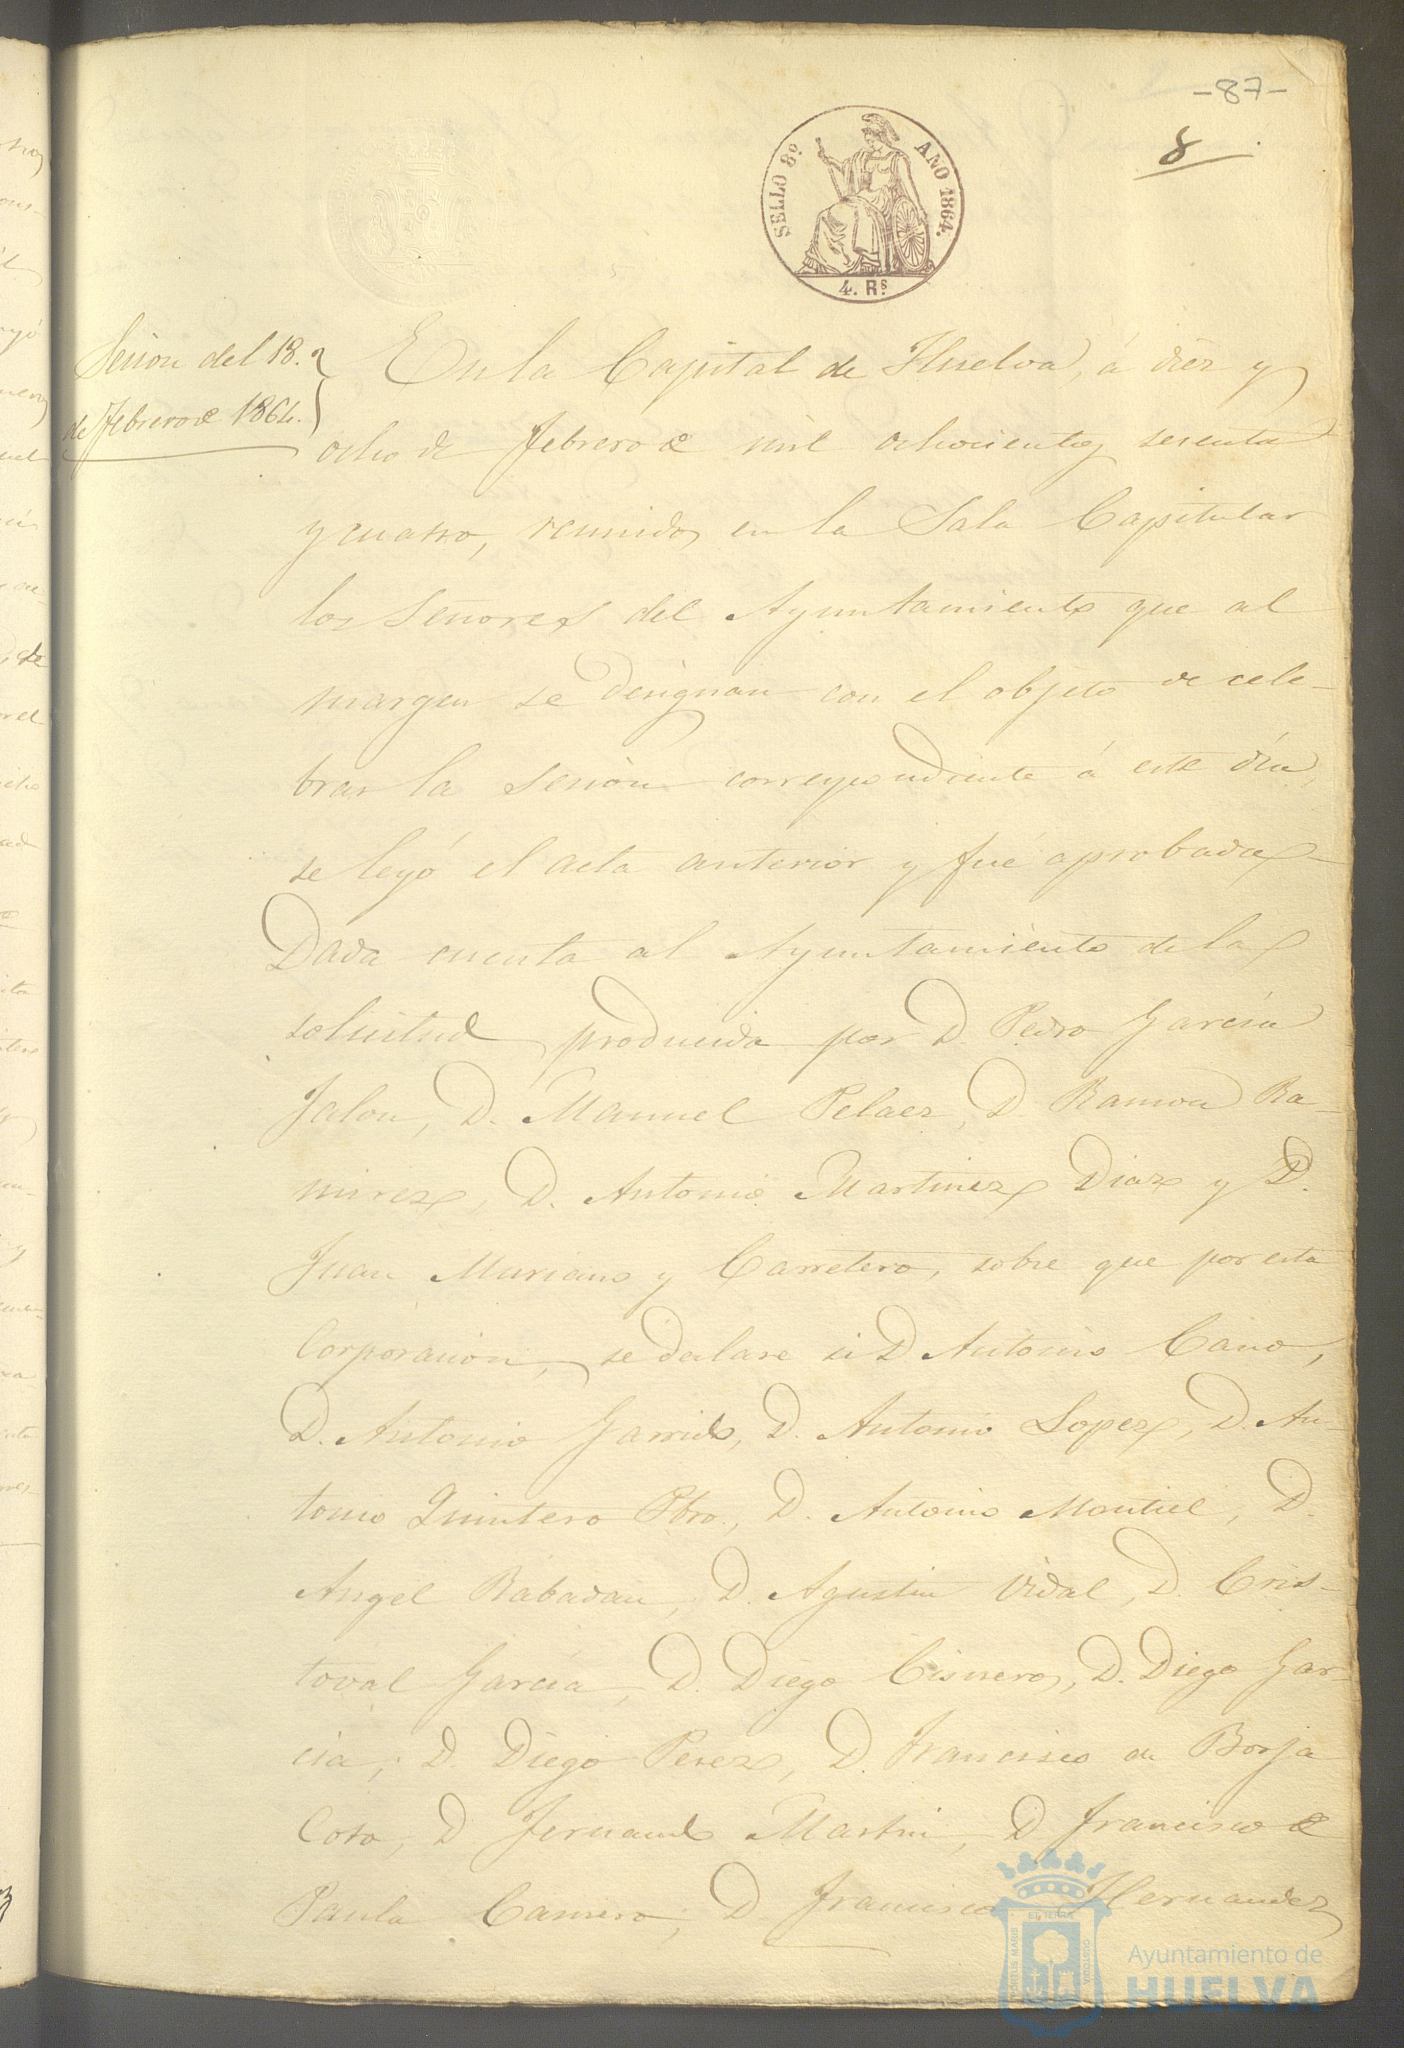 -87-
8
SELLO 8º AÑO 1864.
4. Rs
Sesion del 18.
de Febrero de 1864.
En la Capital de Huelva, á diez y
ocho de Febrero de mil ochocientos sesenta
y cuatro, reunidos en la Sala Capitular
los Señores del Ayuntamiento que al
margen se designan con el objeto de cele-
brar la sesion correspondiente á este dia,
se leyó el acta anterior y fué aprobada
Dada cuenta al Ayuntamiento de la
solicitud producida por D. Pedro Garcia
Jalon, D. Manuel Pelaez, D Ramon Ra-
mirez, D. Antonio Martinez Diaz y D.
Juan Muriano y Carretero, sobre que por esta
Corporacion, se declare si D Antonio Cano,
D. Antonio Garrido, D. Antonio Lopez, D. An-
tonio Quintero Pbro., D. Antonio Montiel, D.
Angel Rabadan, D. Agustin Vidal, D. Cris-
toval Garcia, D. Diego Cisneros, D. Diego Gar-
cia, D. Diego Perez, D. Francisco de Borja
Coto, D Fernando Martin, D Francisco de
Paula Camero, D Francisco Hernandez
Ayuntamiento de
HUELVA